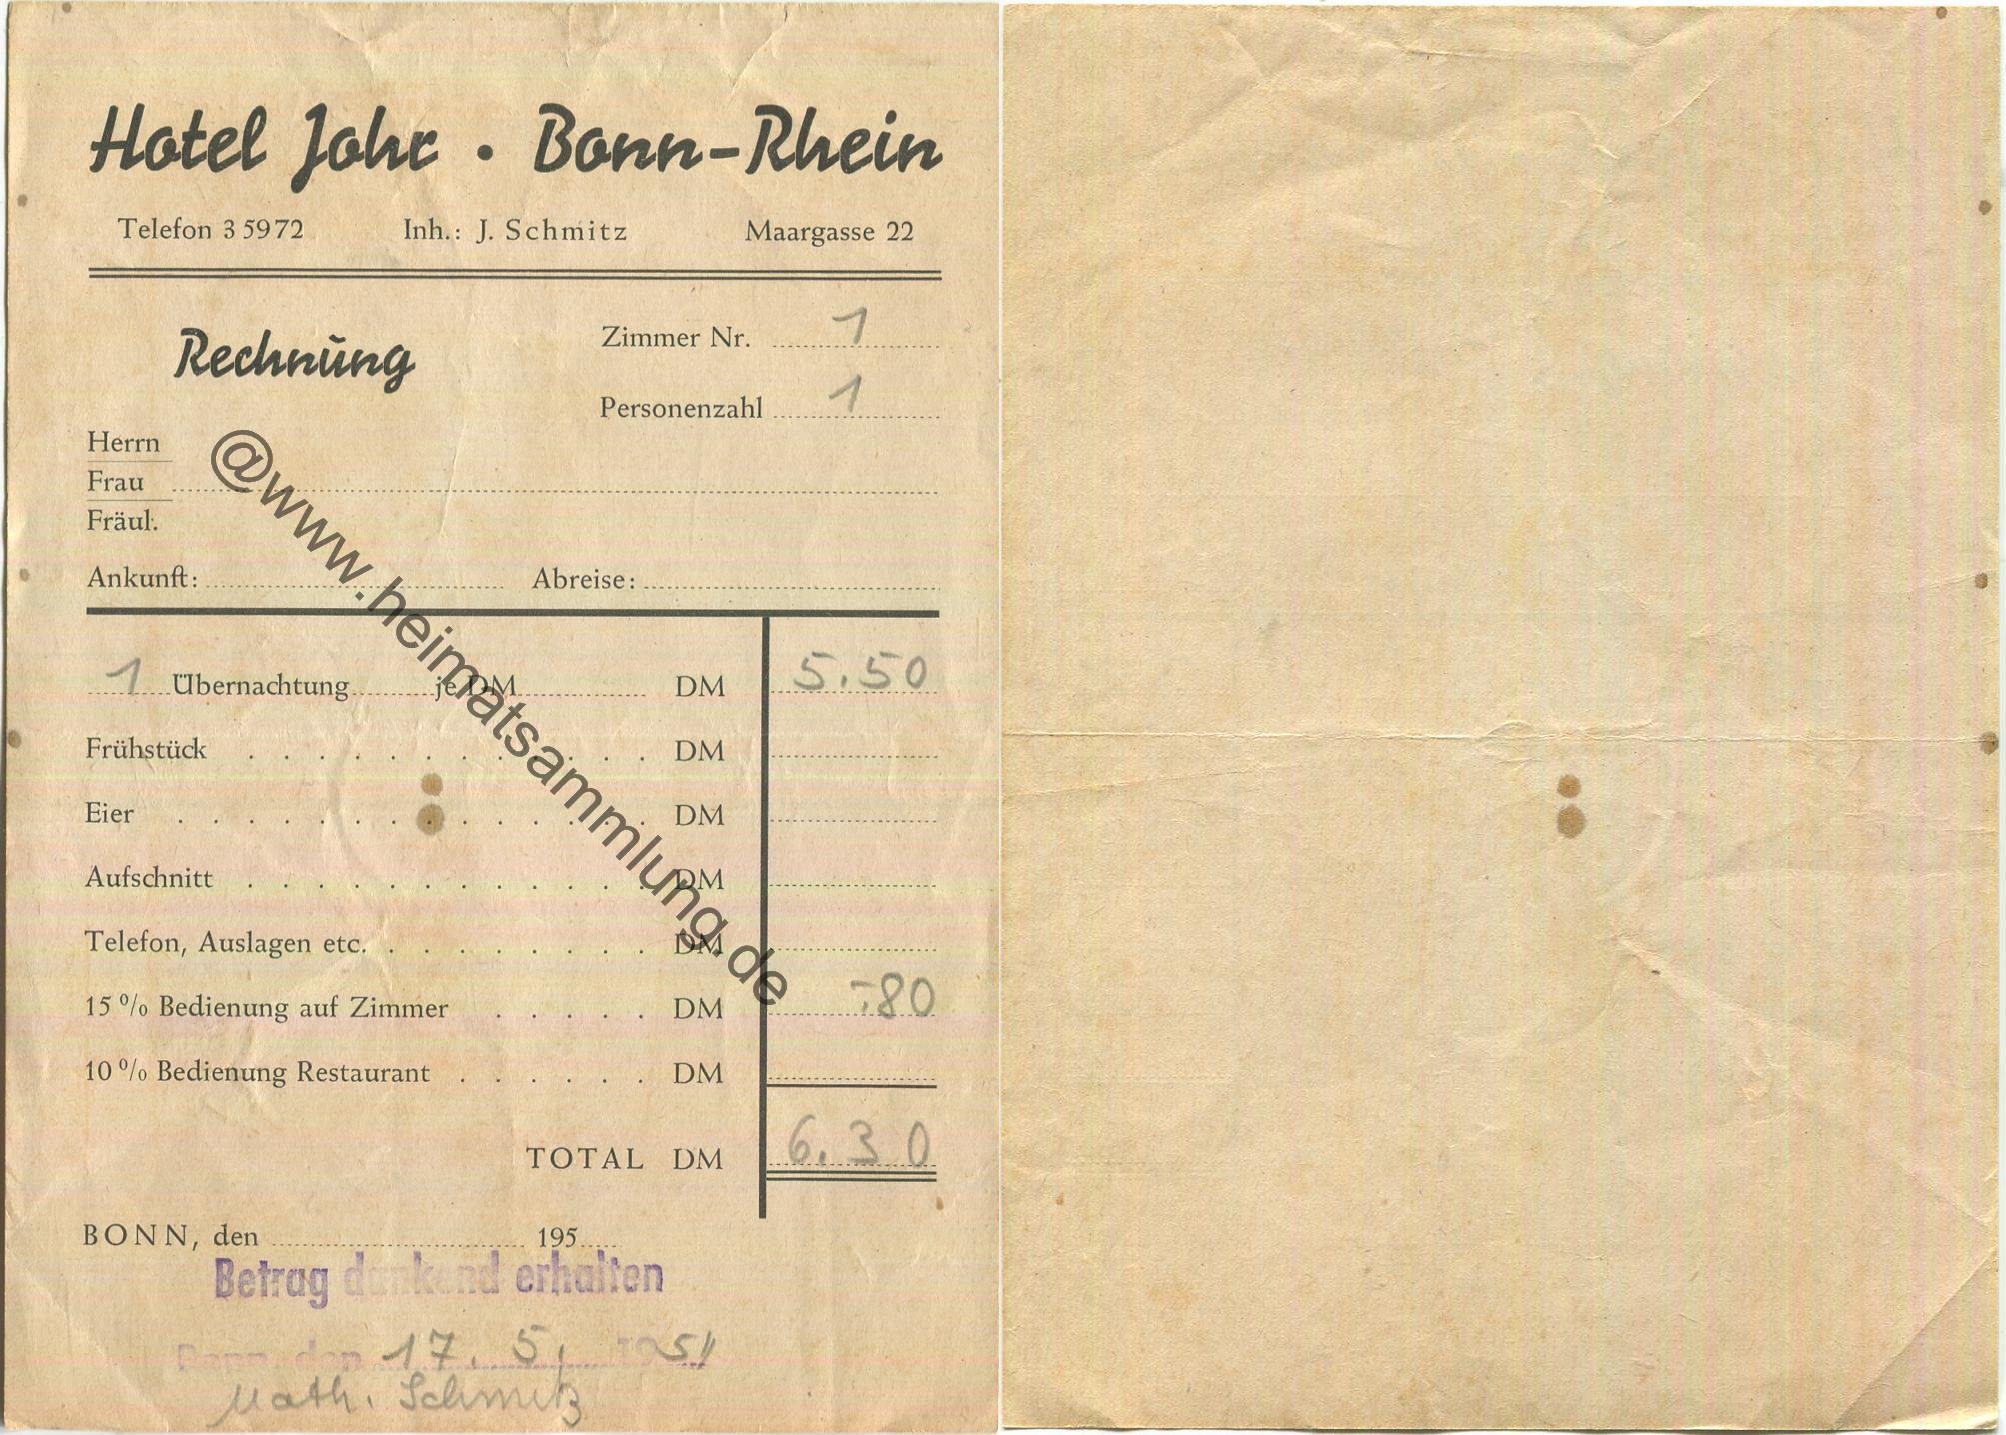 Hotel Johr • Bonn-Rhein
Telefon 3 59 72 Inh.: J. Schmitz Maargasse 22
Rechnung
Zimmer Nr. 1
Personenzahl 1
Herrn
Frau
Fräul.
Ankunft: Abreise:
1 Übernachtung je DM DM 5.50
Frühstück DM
Eier DM
Aufschnitt DM
Telefon, Auslagen etc. DM
15 % Bedienung auf Zimmer DM -.80
10 % Bedienung Restaurant DM
TOTAL DM 6.30
BONN, den 195
Betrag dankend erhalten
Bonn, den 17. 5. 1951
Math. Schmitz
@www.heimatsammlung.de